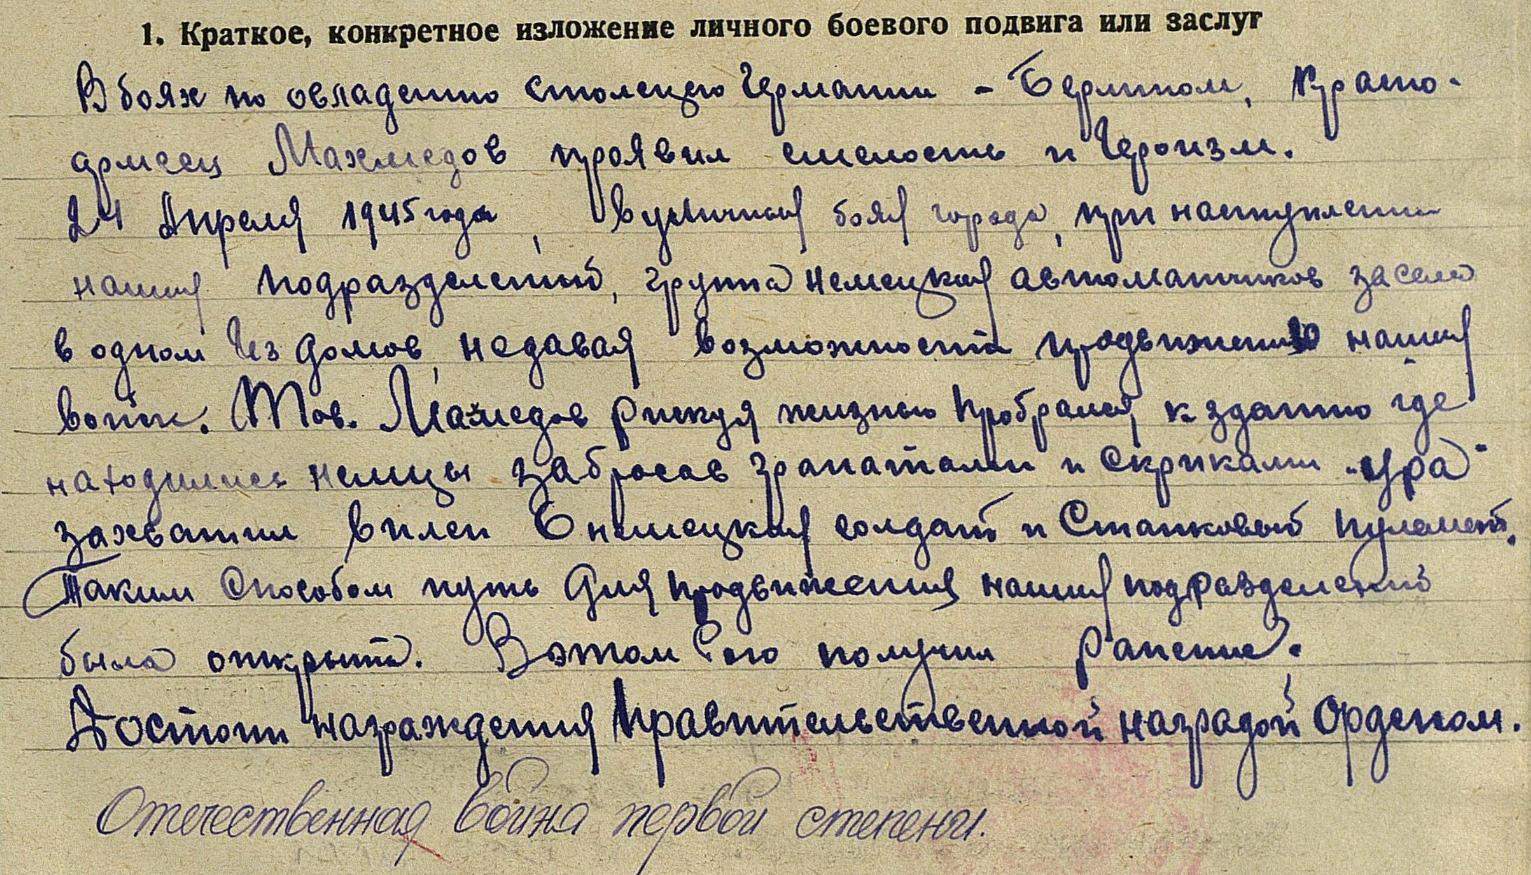 1. Краткое, конкретное изложение личного боевого подвига или заслуг
В боях по овладению столецею Германии - Берлином, Красно-
армеец Махмедов проявил смелость и Героизм.
24 Апреля 1945 года, в уличных боях города, при наступлении
наших подразделений, группа немецких автоматчиков засела
в одном из домов, недавая возможности продвижению наших
войск. Тов. Махмедов рискуя жизнью пробрался к зданию где
находились немцы забросав гранатами и скриками "ура"
захватил вплен 6 немецких солдат и Станковый пулемет.
Таким способом путь для продвижения наших подразделений
была открыта. Вэтом бою получил ранение.
Достоин награждения Правительственной наградой Орденом.
Отечественная война первой степени.